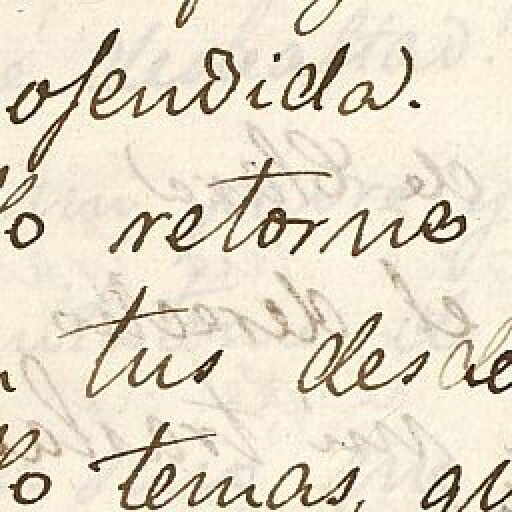 ofendida.
lo retorne
tus desde
lo temas, qu